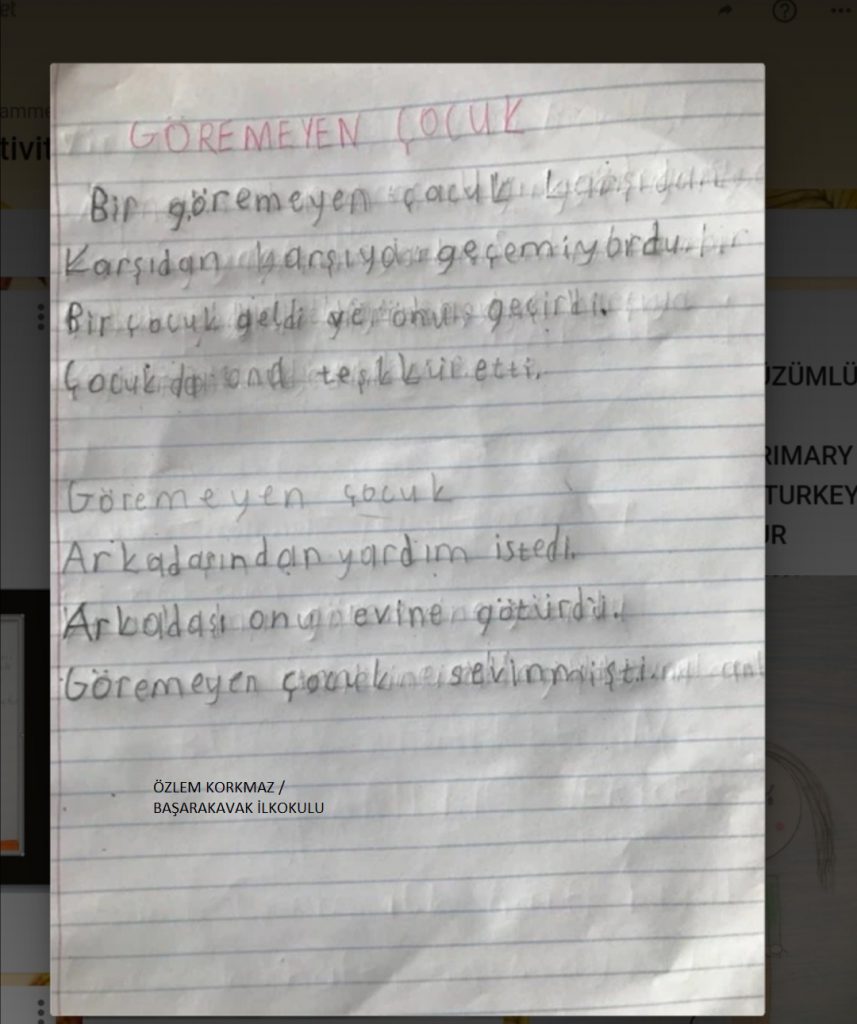 GÖREMEYEN ÇOCUK
Bir göremeyen çacuk
Karşıdan karşıya geçemiyordu.
Bir çocuk geldi ve onu geçirdi.
Çocuk da ona teşkkür etti.
Göremeyen çocuk
Arkadaşından yardım istedi.
Arkadaşı onu evine götürdü.
Göremeyen çocuk sevinmişti.
ÖZLEM KORKMAZ /
BAŞARAKAVAK İLKOKULU
TURKEY